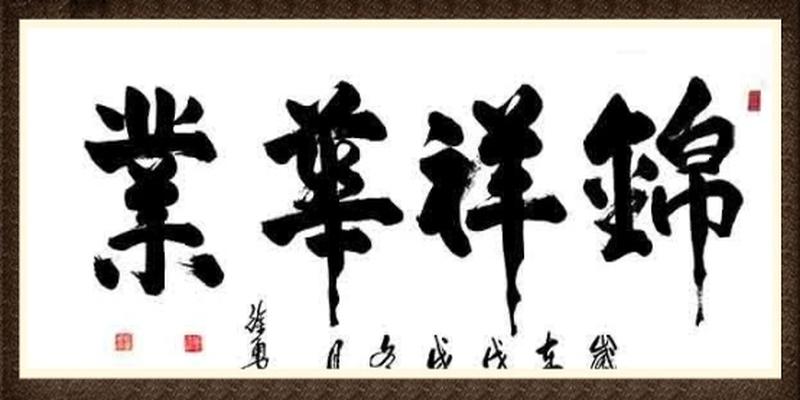 錦祥華業
歲在戊戌冬月
徐勇